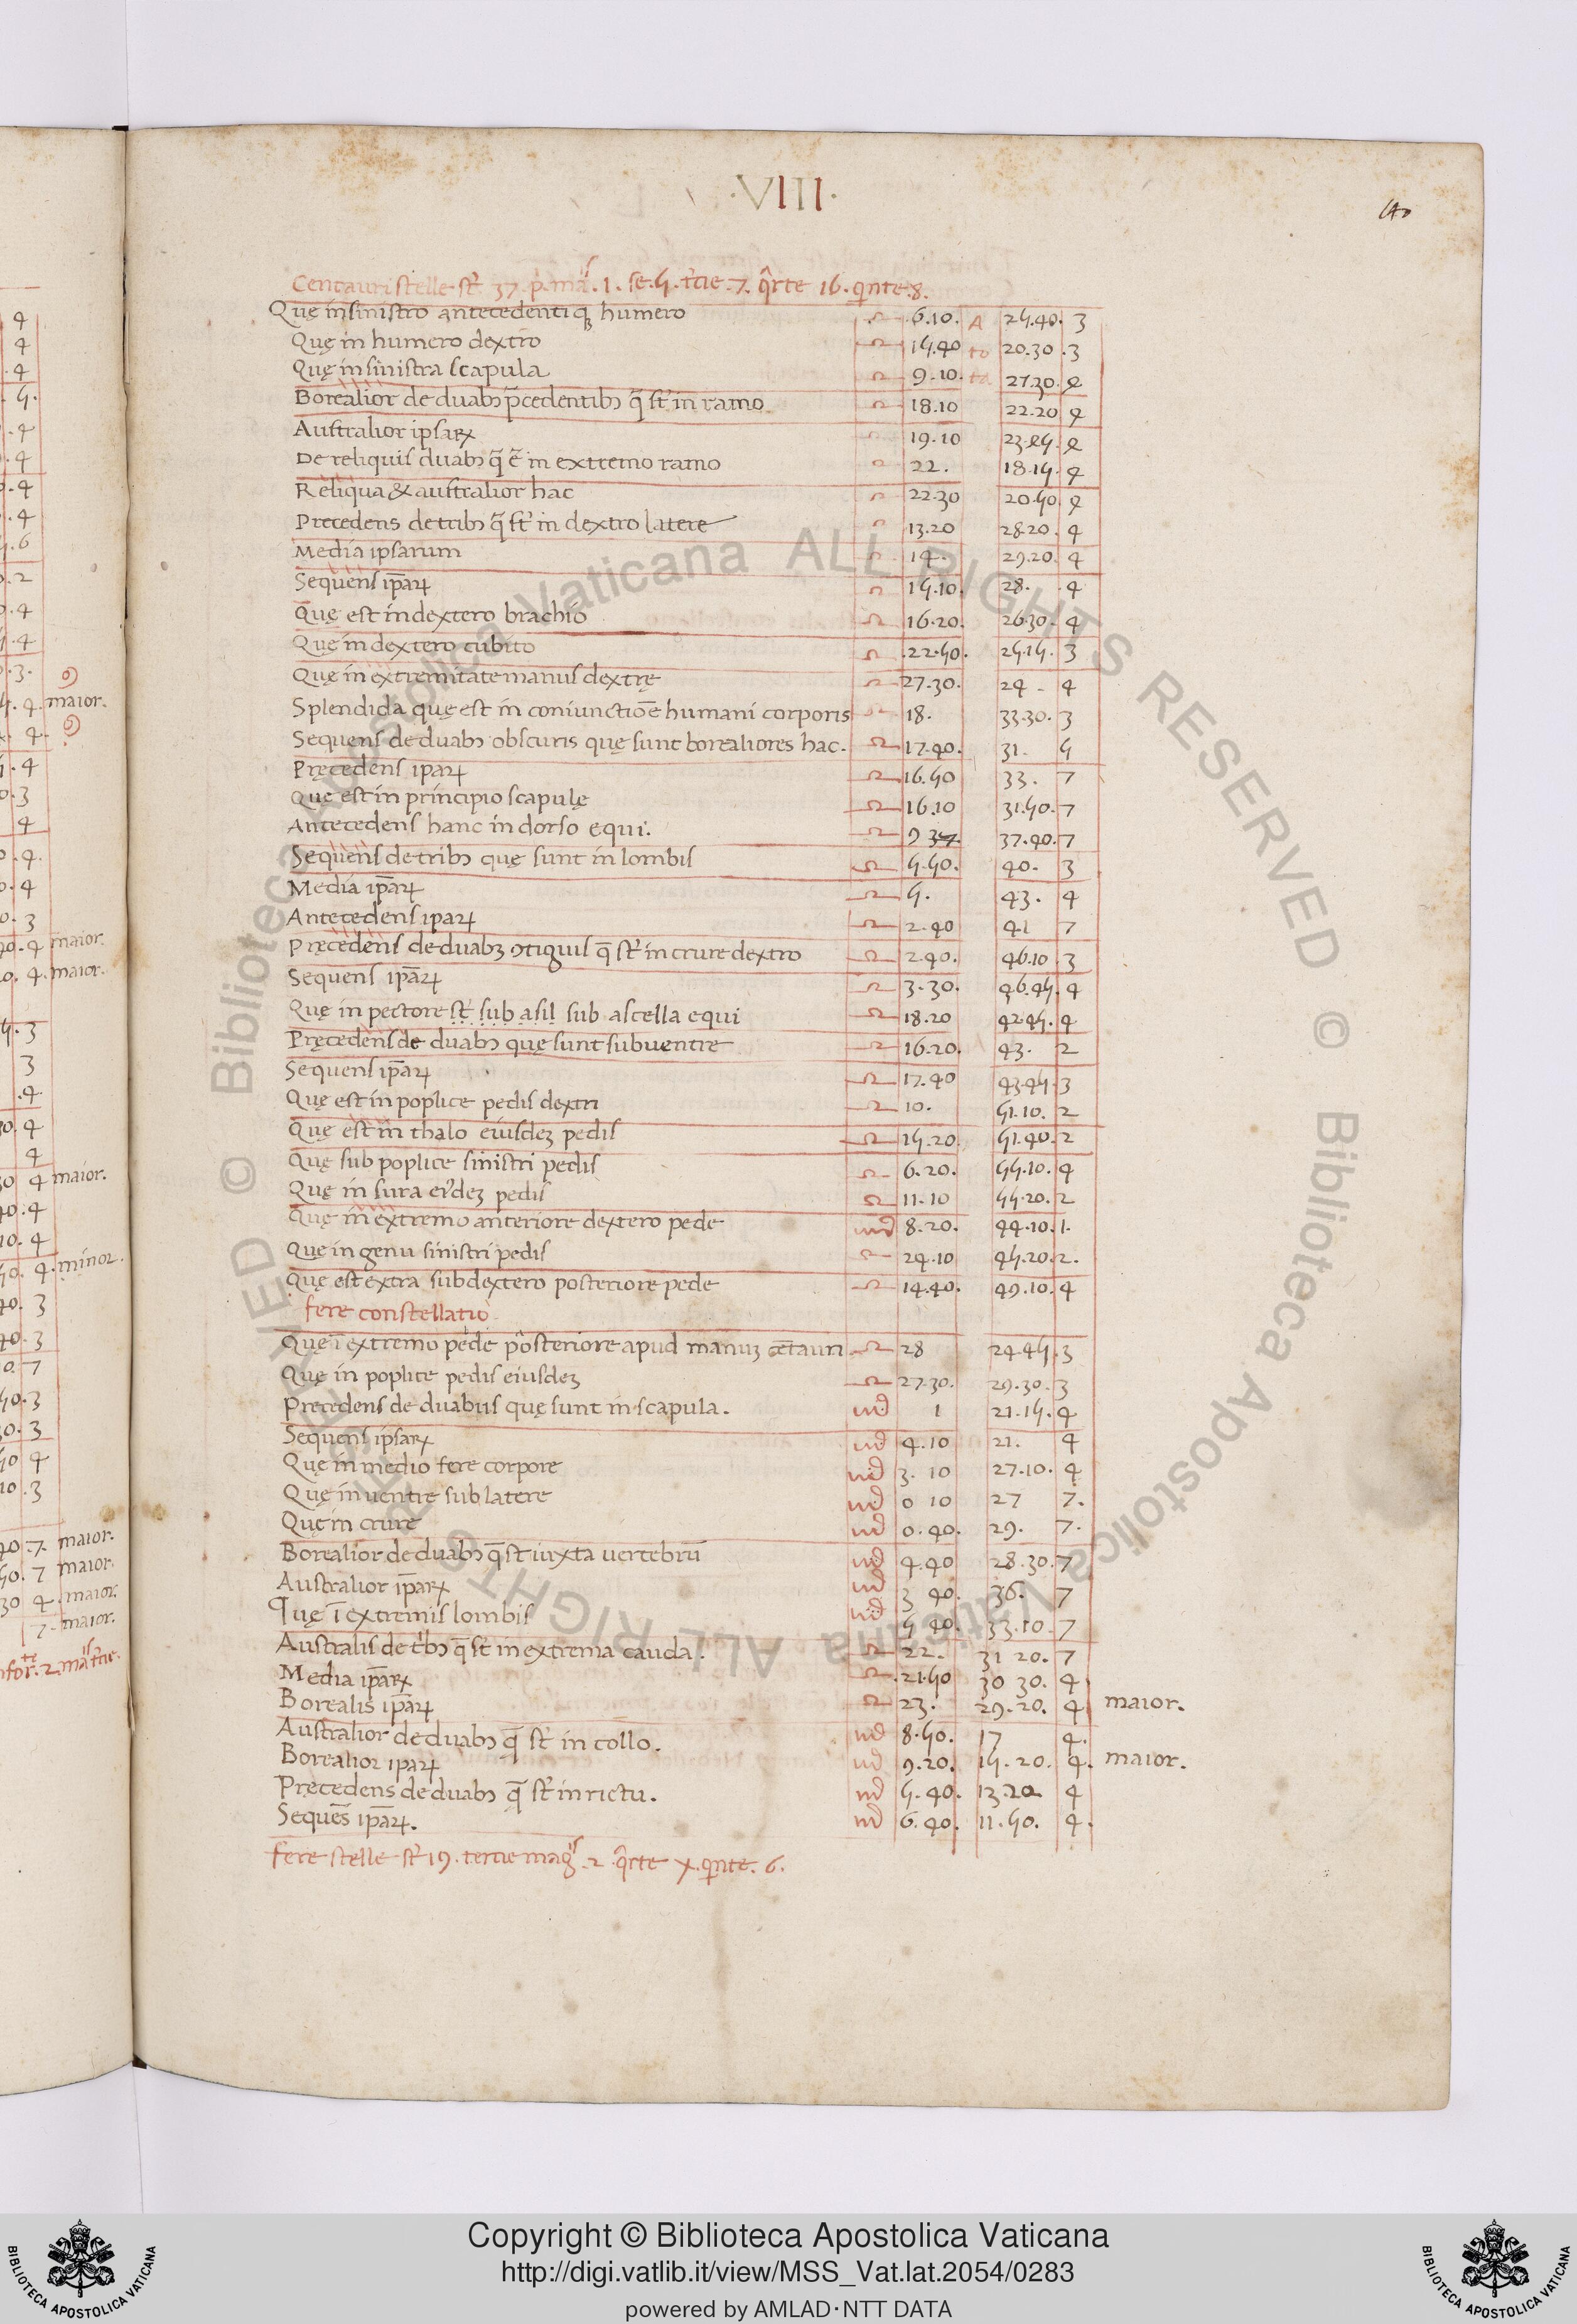 ·VIII·
140
Centauri stelle st̄ 37. p. maˢ. 1. se. 5. t̄cie. 7. q̄rte 16. q̄nte. 8.
Quę in sinistro antecedentiqꝫ humero ♎ 6.10. A 25.40. 3
Quę in humero dextro ♎ 15.40 20.30. 3
Quę in sinistra scapula ♎ 9.10. 27.30. 4
Borealior de duabꝫ p̄cedentibꝫ q̄ st̄ in ramo. ♎ 18.10 22.20 4
Australior ipsaꝝ ♎ 19.10 23.45. 4
De reliquis duabꝫ q̄ ē in extremo ramo ♎ 22. 18.15. 4
Reliqua & australior hac ♎ 22.30 20.50. 4
Precedens de tribꝫ q̄ st̄ in dextro latere ♎ 13.20 28.20. 4
Media ipsarum ♎ 14. 29.20. 4
Sequens ip̄aꝝ ♎ 15.10. 28. 4
Quę est in dextero brachio ♎ 16.20. 26.30. 4
Quę in dextero cubito ♎ 22.50. 25.15. 3
Quę in extremitate manus dextrę ♎ 27.30. 24 4
Splendida quę est in coniunctiōe humani corporis ♎ 18. 33.30. 3
Sequens de duabꝫ obscuris quę sunt borealiores hac. ♎ 17.40. 31. 5
Pręcedens ipaꝝ ♎ 16.50 33. 7
Quę est in principio scapulę ♎ 16.10 31.50. 7
Antecedens hanc in dorso equi. ♎ 9 37.40. 7
Sequens de tribꝫ quę sunt in lombis ♎ 5.50. 40. 3
Media ip̄aꝝ ♎ 5. 43. 4
Antecedens ipaꝝ ♎ 2.40 41 7
Pręcedens de duabꝫ ꝯtiguis q̄ st̄ in crure dextro ♎ 2.40. 46.10 3
Sequens ip̄aꝝ ♎ 3.30. 46.45. 4
Quę in pectore st̄ sub asil sub ascella equi ♎ 18.20 42.45. 4
Pręcedens de duabꝫ quę sunt sub uentre ♎ 16.20. 43. 2
Sequens ip̄aꝝ ♎ 17.40 43.45. 3
Quę est in poplite pedis dextri ♎ 10. 51.10. 2
Quę est in thalo eiusdeꝫ pedis ♎ 15.20 51.40. 2
Quę sub poplite sinistri pedis ♎ 6.20. 55.10. 4
Quę in sura eiꝰdeꝫ pedis ♎ 11.10 55.20. 2
Quę in extremo anteriore dextero pede ♏ 8.20. 44.10. 1.
Quę in genu sinistri pedis ♎ 24.10 45.20. 2.
Quę est extra sub dextero posteriore pede ♎ 14.40. 49.10. 4
fere constellatio
Quę ī extremo pede posteriore apud manuꝫ cētauri ♎ 28 24.45. 3
Quę in poplite pedis eiusdeꝫ ♎ 27.30. 29.30. 3
Precedens de duabus quę sunt in scapula. ♏ 1 21.15. 4
Sequens ipsaꝝ ♏ 4.10 21. 4
Quę in medio fere corpore ♏ 3. 10 27.10. 4
Quę in uentre sub latere ♏ 0 10 27 7.
Quę in crure ♏ 0.40. 29. 7.
Borealior de duabꝫ q̄ st̄ iuxta uertebrū ♏ 4.40 28.30. 7
Australior ip̄aꝝ ♏ 3 40. 36. 7
Quę ī extremis lombis ♏ 5 40. 33.10. 7
Australis de t̄bꝫ q̄ st̄ in extrema cauda. ♎ 22. 31 20. 7
Media ip̄aꝝ ♎ 21.50 30 30. 4
Borealis ip̄aꝝ ♎ 23. 29.20. 4 maior.
Australior de duabꝫ q̄ st̄ in collo. ♏ 8.50. 17 4.
Borealior ipaꝝ ♏ 9.20. 15.20. 4. maior.
Pręcedens de duabꝫ q̄ st̄ in rictu. ♏ 5.40. 13.20 4
Sequēs ip̄aꝝ. ♏ 6.40. 11.50. 4.
fere stelle st̄ 19. tertie magˢ. 2. q̄rte x. q̄nte. 6.
maior.
maior.
maior.
maior.
minor.
maior.
maior.
maior.
maior.
© Biblioteca Apostolica Vaticana ALL RIGHTS RESERVED © Biblioteca Apostolica Vaticana ALL RIGHTS RESERVED
Copyright © Biblioteca Apostolica Vaticana
http://digi.vatlib.it/view/MSS_Vat.lat.2054/0283
powered by AMLAD·NTT DATA
BIBLIOTECA APOSTOLICA VATICANA
BIBLIOTECA APOSTOLICA VATICANA